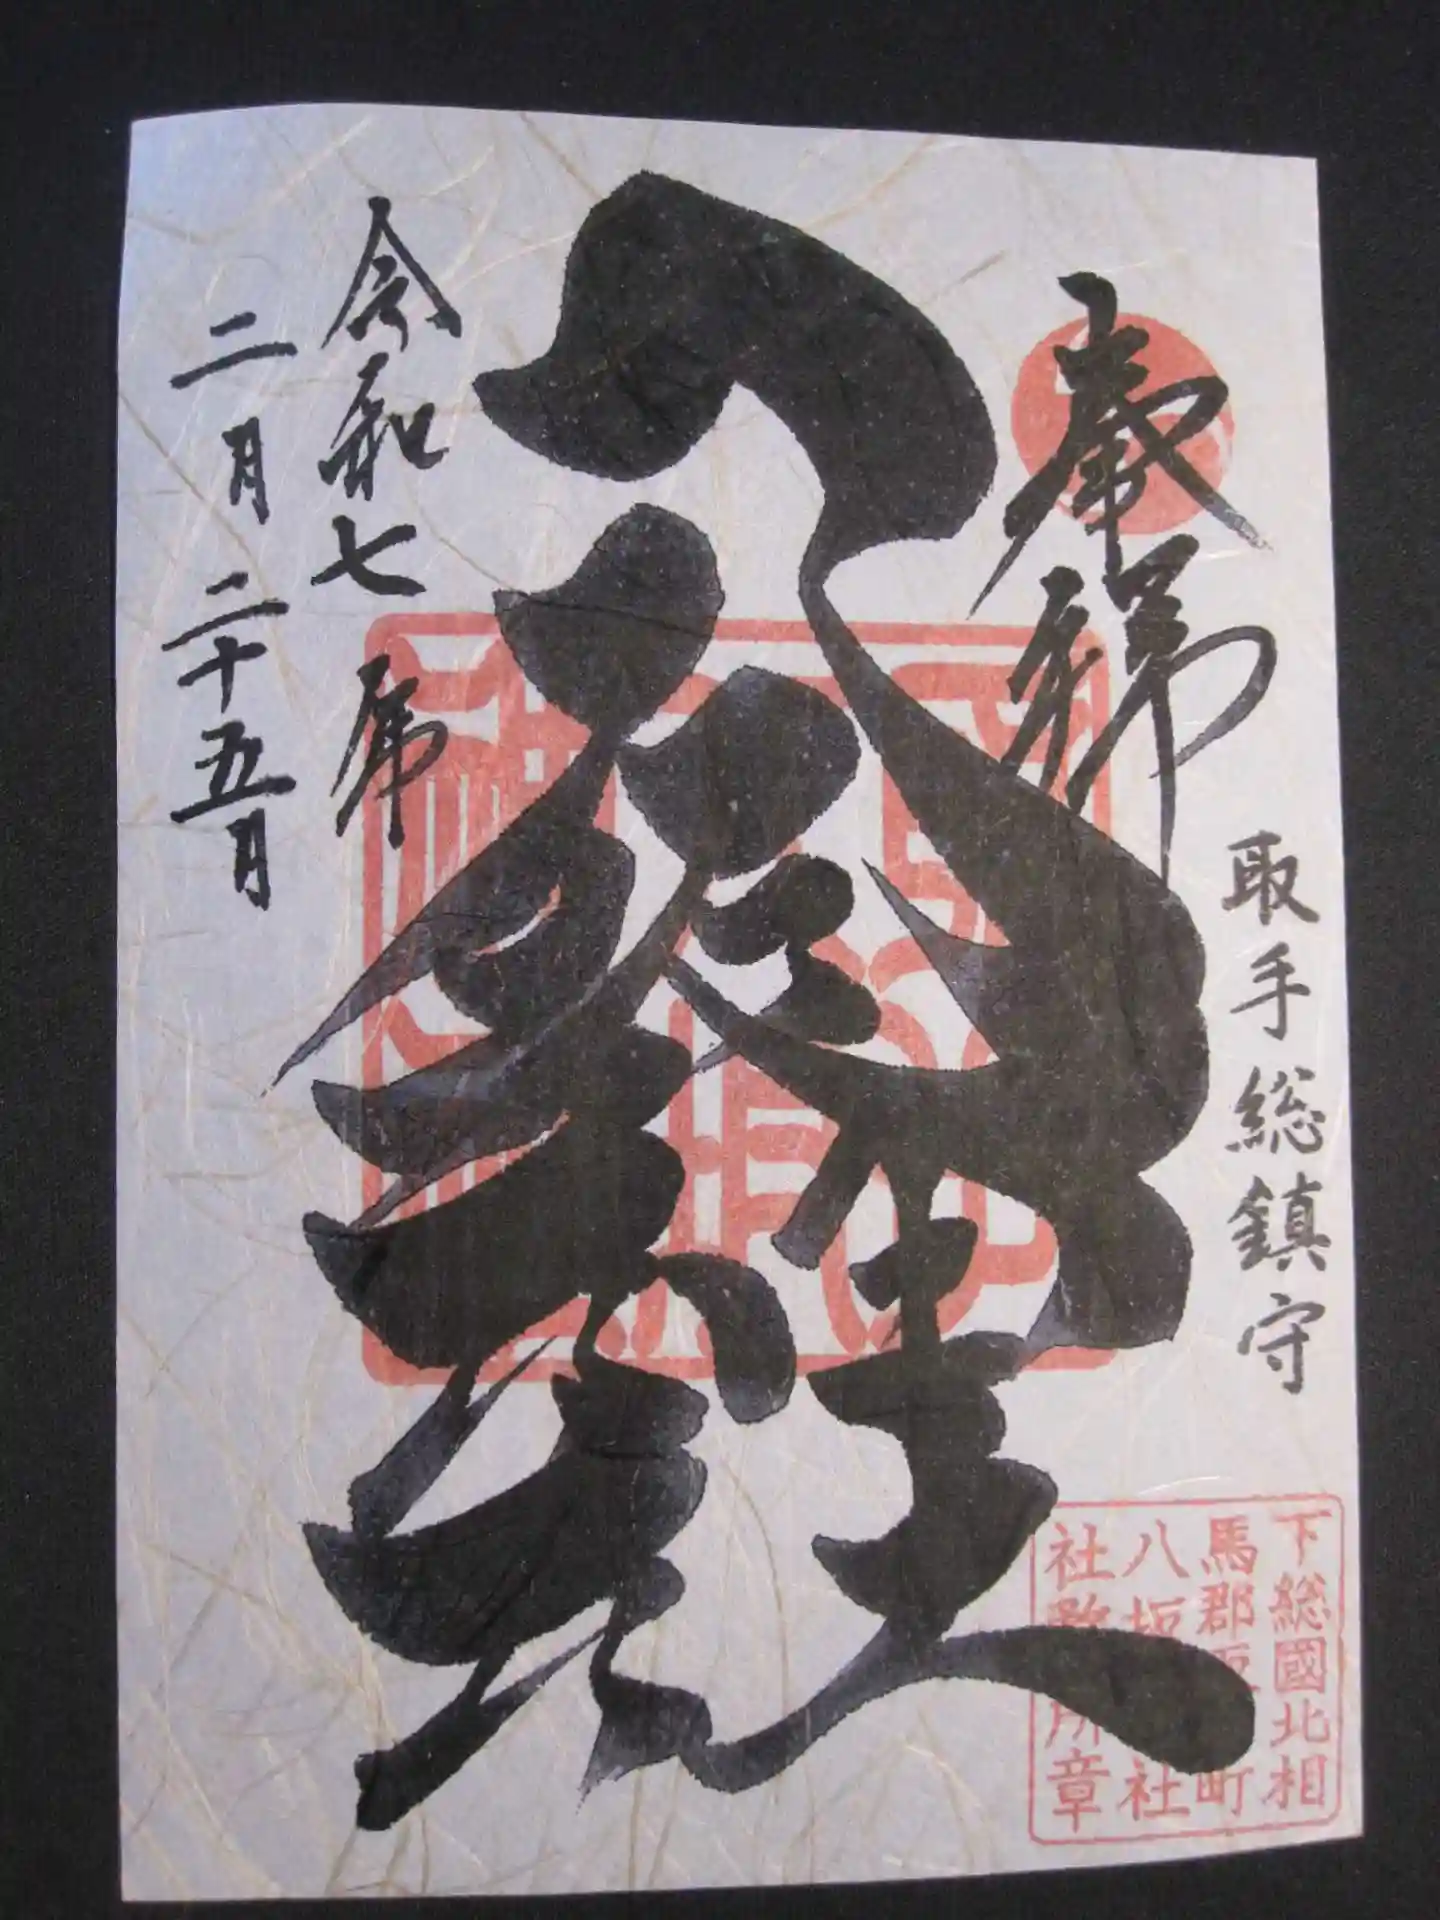 奉拝
取手総鎮守
八坂神社
令和七年
二月二十五日
下総國北相
馬郡取手町
八坂神社
社務所章